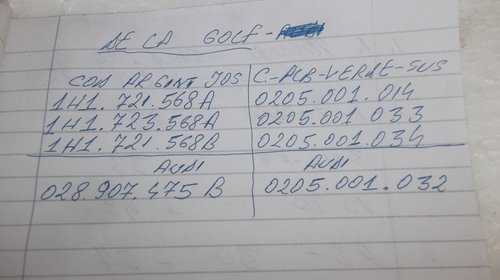 DE LA GOLF-
COD ARGINT JOS C-PCB-VERDE-SUS
1H1.721.568A 0205.001.014
1H1.723.568A 0205.001 033
1H1.721.568B 0205.001.034
AUDI AUDI
028.907.475 B 0205.001.032